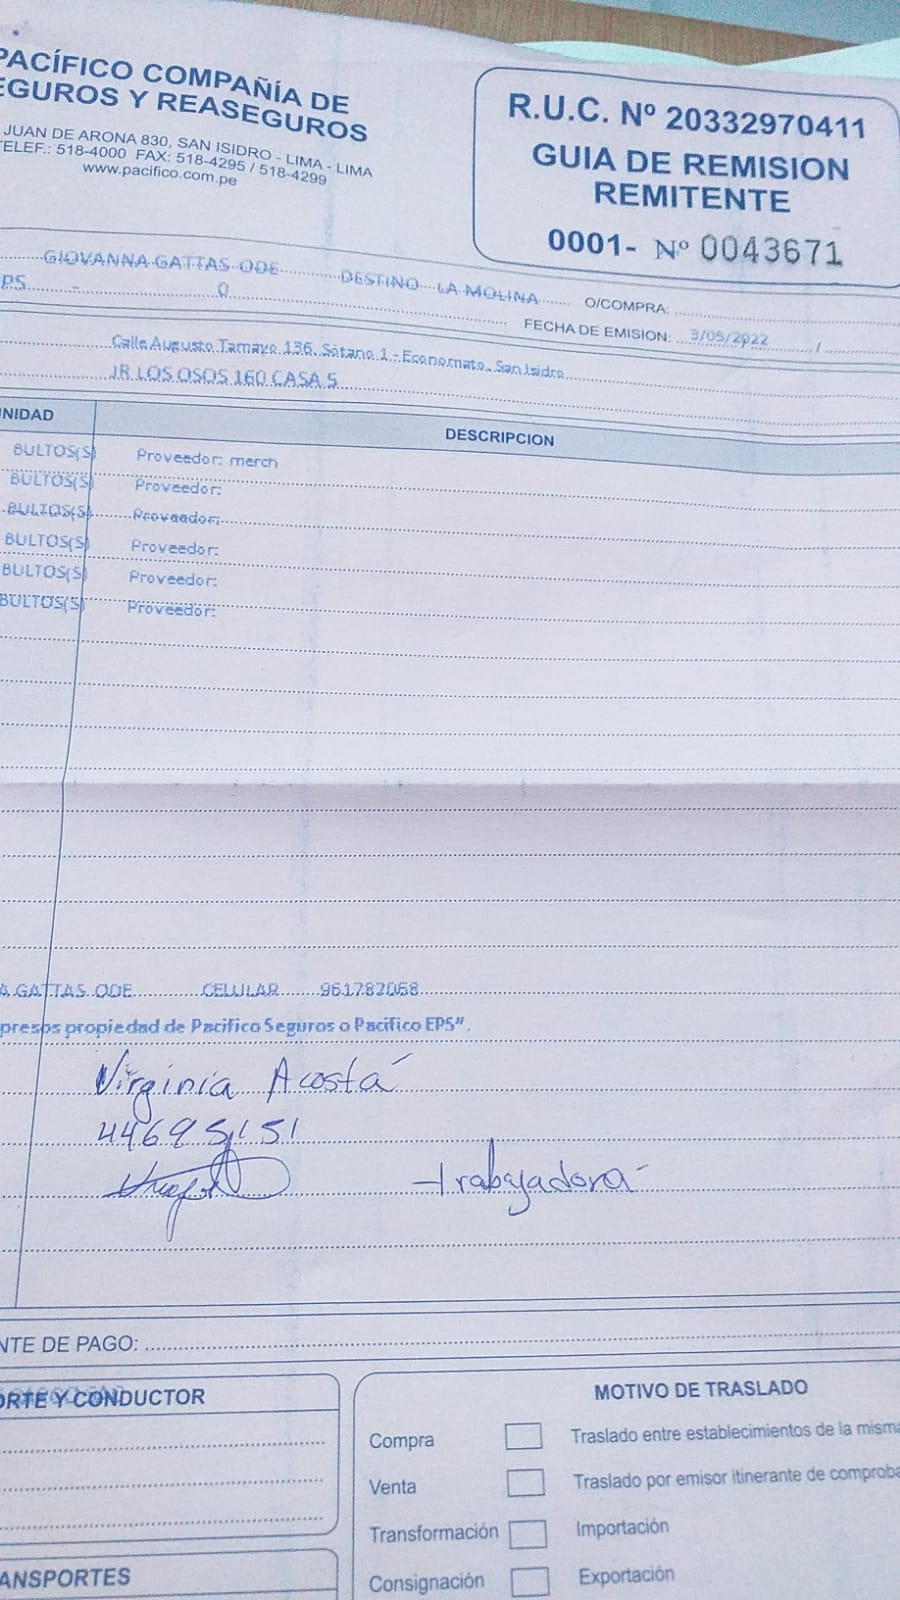 PACÍFICO COMPAÑÍA DE
EGUROS Y REASEGUROS
JUAN DE ARONA 830, SAN ISIDRO - LIMA - LIMA
TELEF.: 518-4000 FAX: 518-4295 / 518-4299
www.pacifico.com.pe
R.U.C. Nº 20332970411
GUIA DE REMISION
REMITENTE
0001- Nº 0043671
GIOVANNA GATTAS ODE DESTINO LA MOLINA O/COMPRA:
PS - 0 FECHA DE EMISION: 3/05/2022 /
Calle Augusto Tamayo 156, Sótano 1 - Economato, San Isidro
JR LOS OSOS 160 CASA 5
UNIDAD DESCRIPCION
BULTOS(S) Proveedor: merch
BULTOS(S) Proveedor:
BULTOS(S) Proveedor:
BULTOS(S) Proveedor:
BULTOS(S) Proveedor:
BULTOS(S) Proveedor:
A GATTAS ODE CELULAR 961782068
presos propiedad de Pacifico Seguros o Pacifico EPS".
Virginia Acosta
44695151
trabajadora
NTE DE PAGO:
ORTE Y CONDUCTOR
ANSPORTES
MOTIVO DE TRASLADO
Compra Traslado entre establecimientos de la misma
Venta Traslado por emisor itinerante de comproba
Transformación Importación
Consignación Exportación